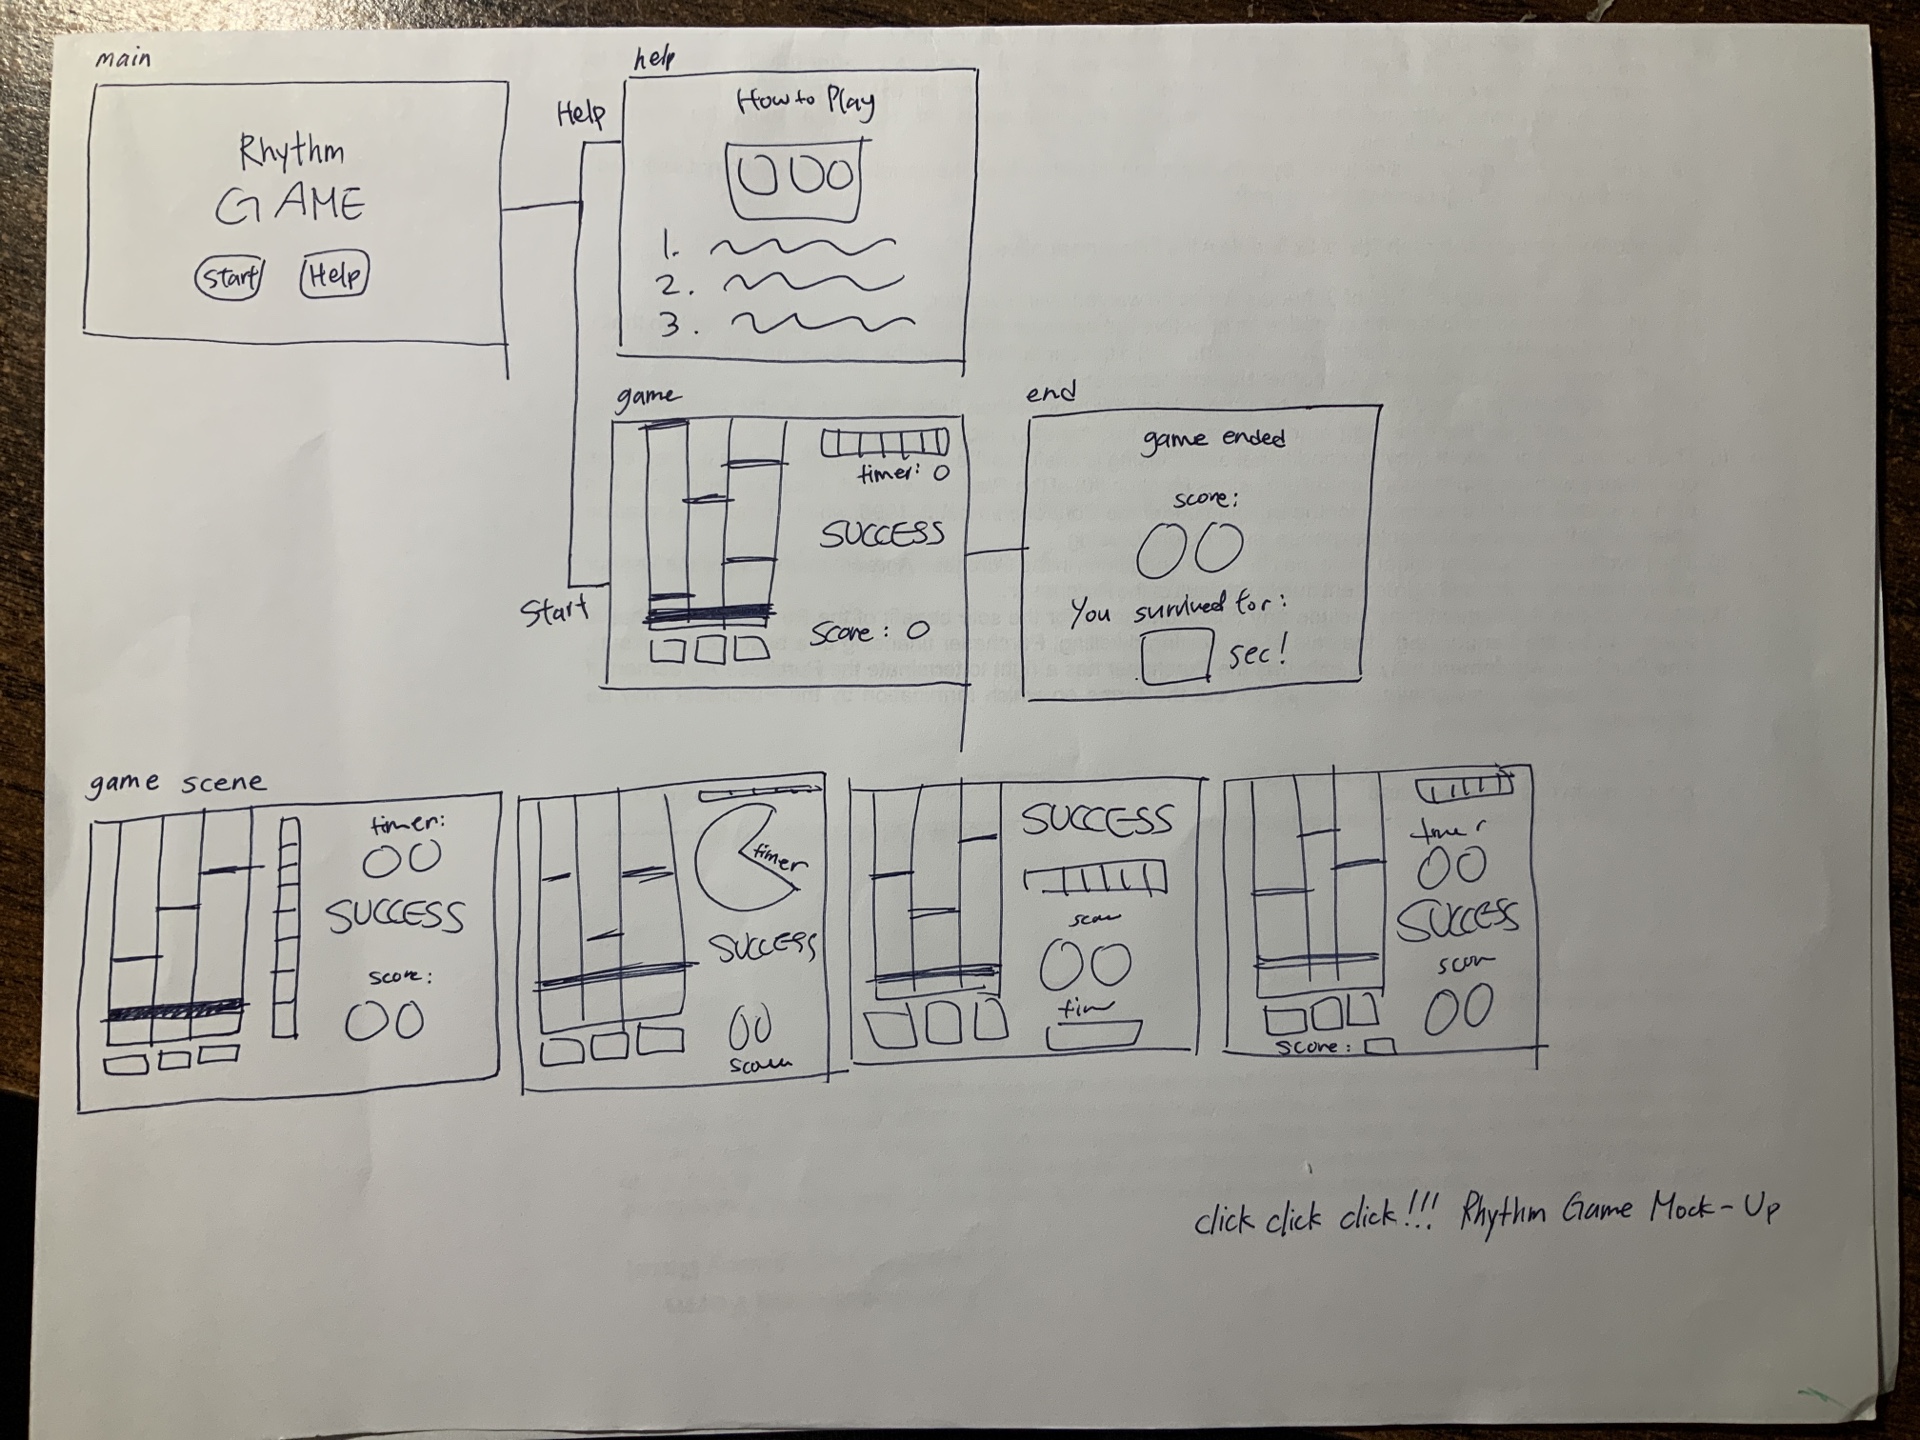 main
Rhythm
GAME
Start
Help
Help
help
How to Play
1.
2.
3.
Start
game
timer: 0
SUCCESS
Score: 0
end
game ended
score:
00
You survived for:
sec!
game scene
timer:
00
SUCCESS
score:
00
timer
SUCCESS
00
SUCCESS
00
timer
00
SUCCESS
00
score:
click click click!!! Rhythm Game Mock-Up